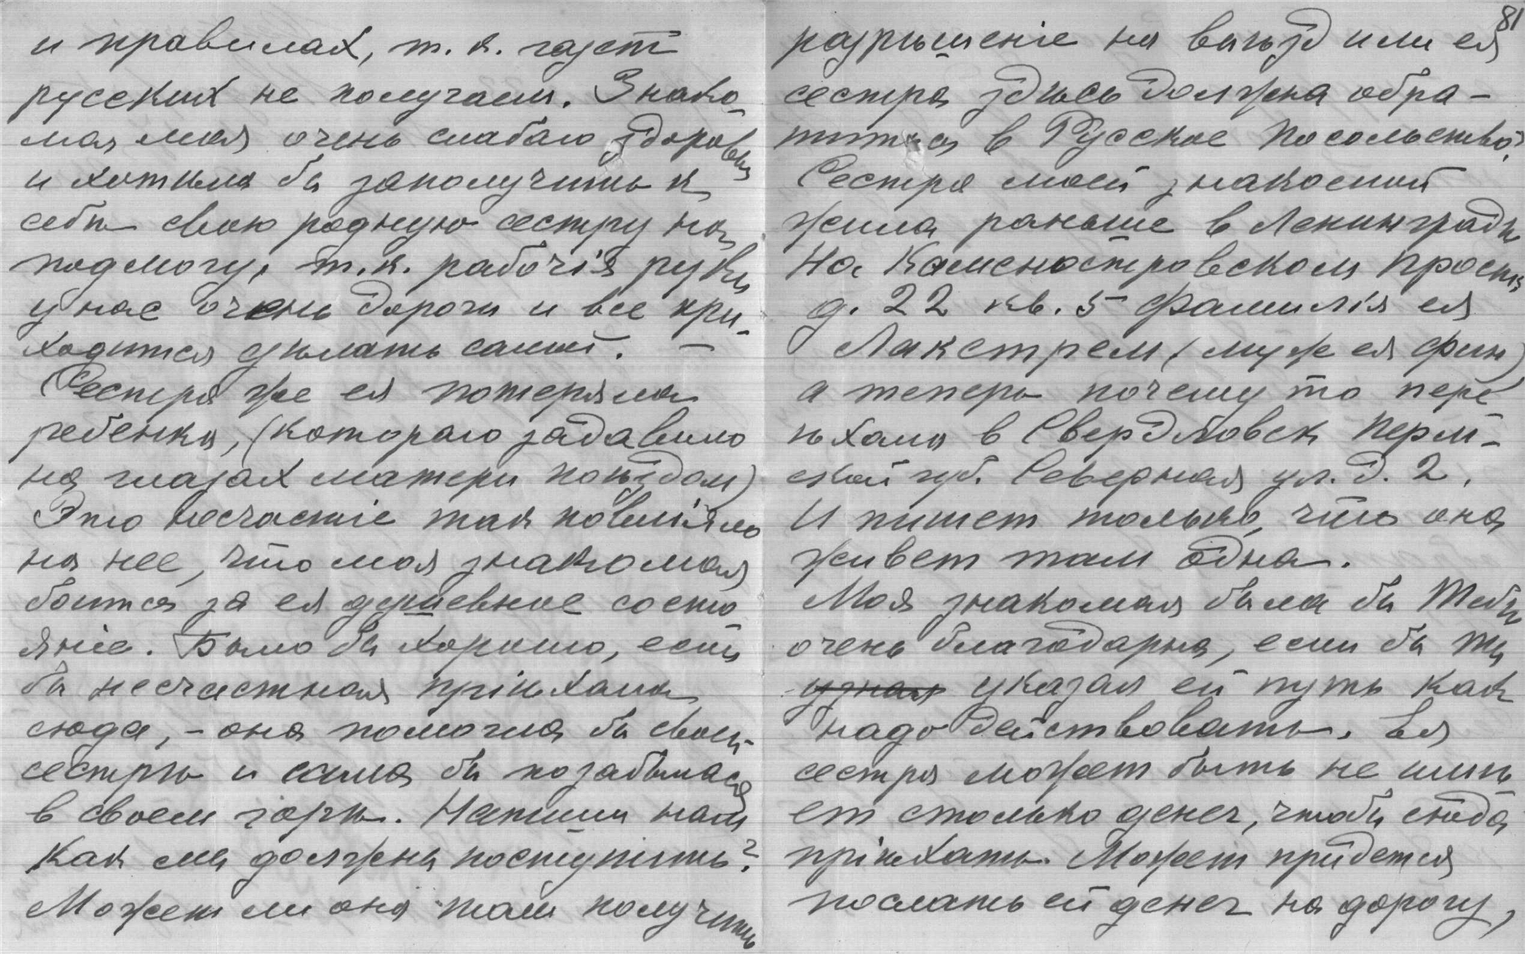 и правилах, т. к. газет
русских не получаем. Знако-
мая моя очень слабаго здоровья
и хотѣла бы заполучить к
себѣ свою родную сестру на
подмогу, т.к. рабочія руки
у нас очень дороги и все при-
ходится дѣлать самой. —
Сестра же ея потеряла
ребенка, (котораго задавило
на глазах матери поѣздом)
Это несчастіе так повліяло
на нее, что моя знакомая
боится за ея душевное состо
яніе. Было бы хорошо, если
бы несчастная пріѣхала
сюда, - она помогла бы своей
сестрѣ и сама бы позабылась
в своем горѣ. Напиши нам
как мы должны поступить?
Может ли она там получить
81
разрѣшеніе на выѣзд или ея
сестра здѣсь должна обра-
титься в Русское Посольство?
Сестра моей знакомой
жила раньше в Ленинградѣ
На Каменостровском Просп.
д. 22 кв. 5 фамилія ея
Лакстрем (муж ея фин)
а теперь почему то пере
ѣхала в Свердловск Перм-
ской губ. Северная ул. д. 2.
И пишет только, что она
живет там одна.
Моя знакомая была бы Тебѣ
очень благодарна, если бы Ты
указал ей путь как
надо действовать. Ея
сестра может быть не имѣ
ет столько денег, чтобы сюда
пріѣхать. Может придется
послать ей денег на дорогу,